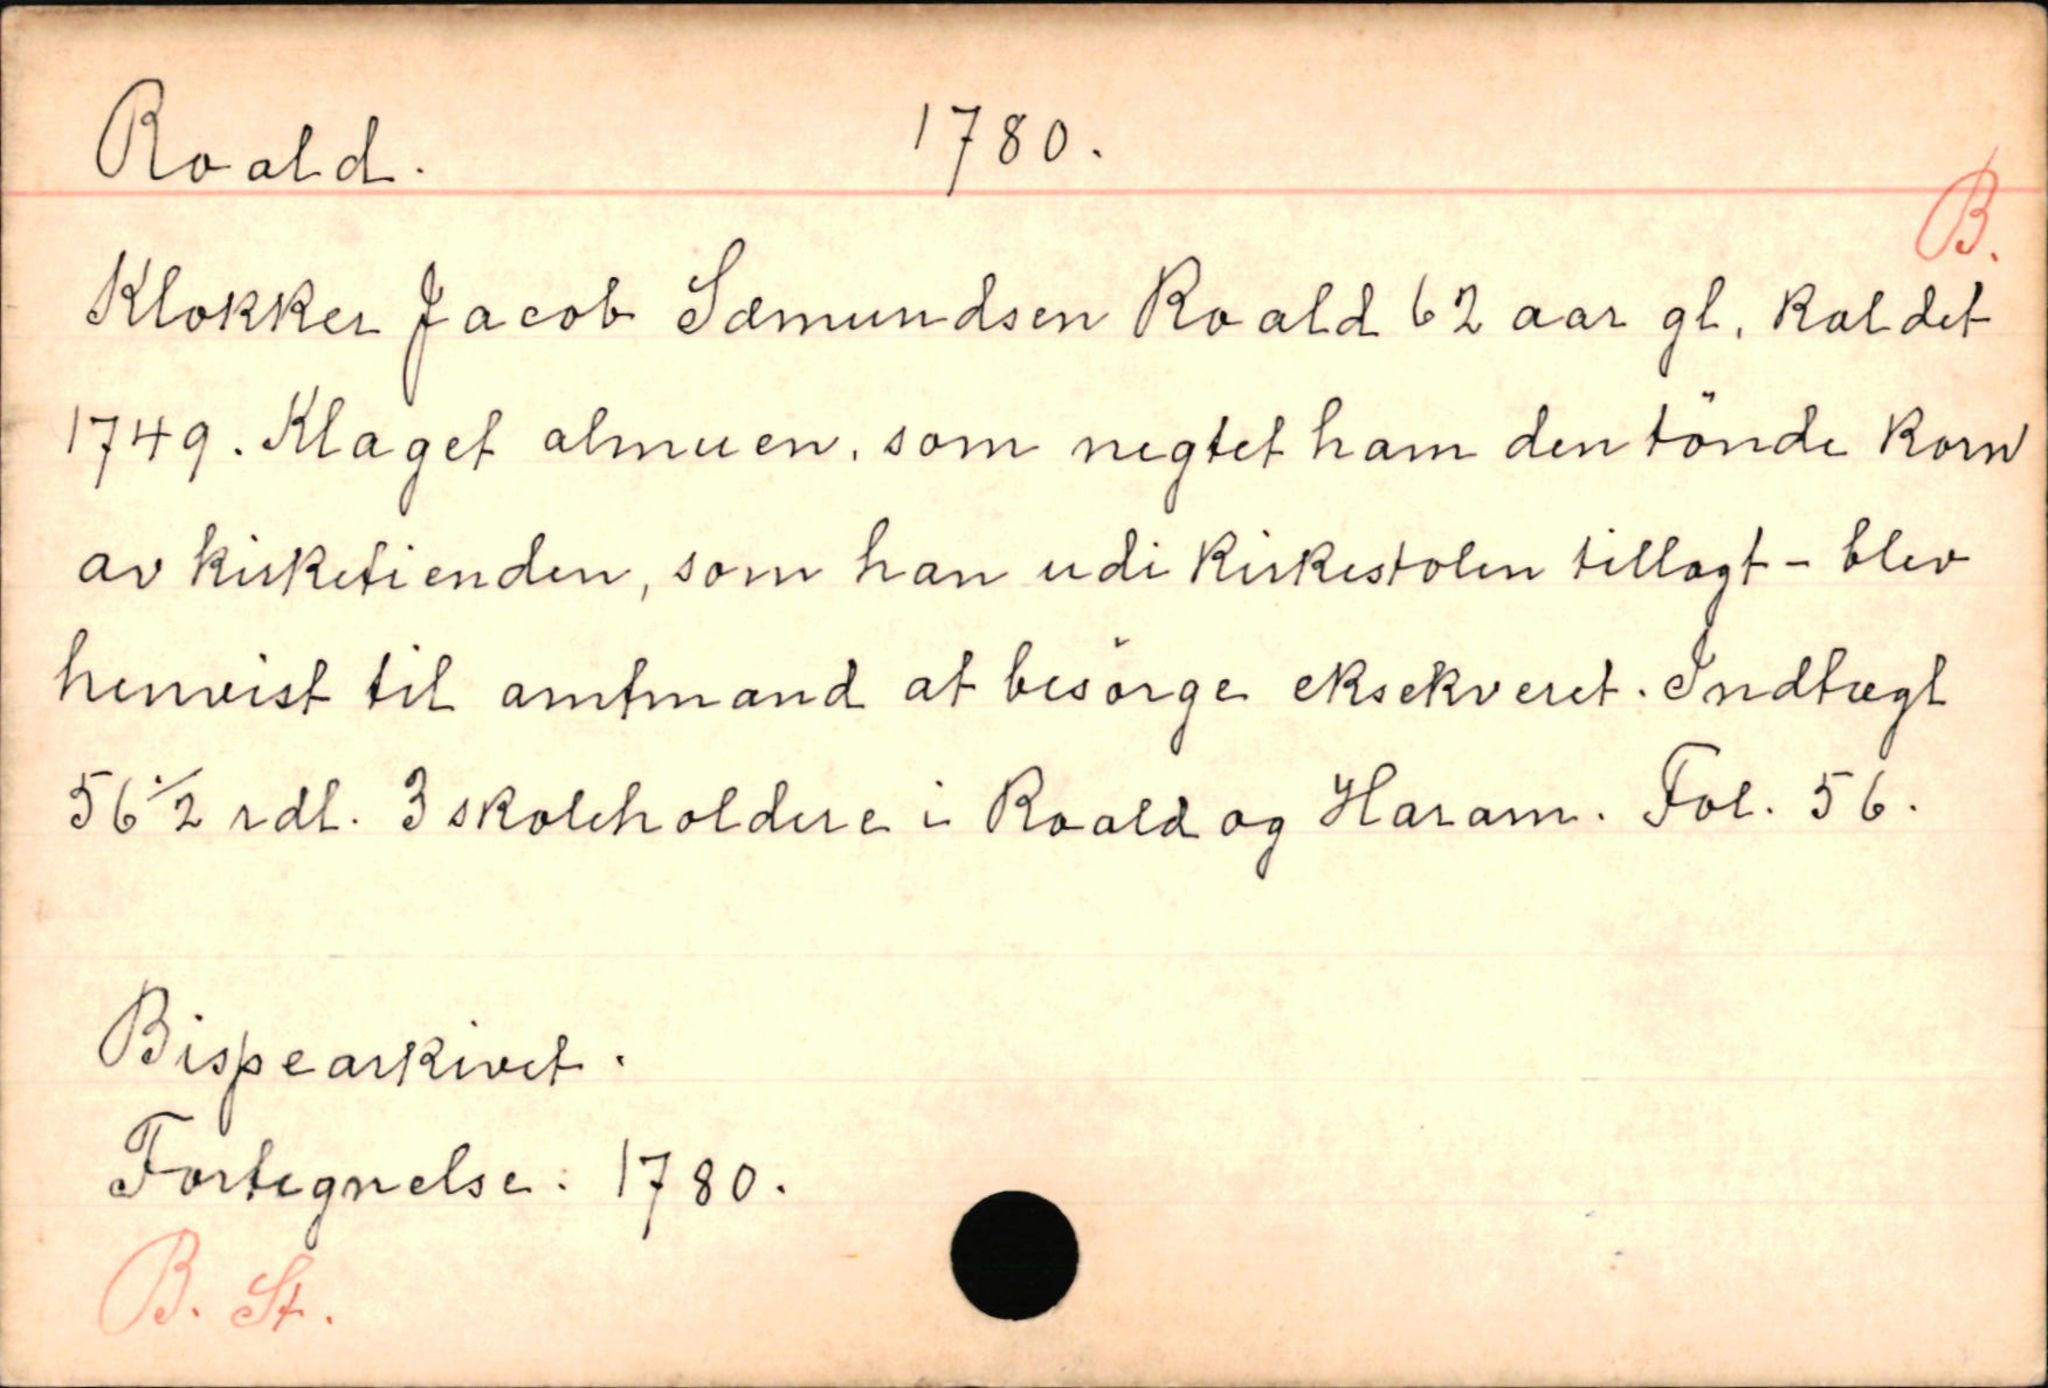 Roald. 1780.
B.
Klokker Jacob Sæmundsen Roald 62 aar gl. kaldet
1749. Klaget almuen, som negtet ham den tönde korn
av kirketienden, som han udi kirkestolen tillagt - blev
henvist til amtmand at besörge eksekveret. Indtægt
56 1/2 rdl. 3 skoleholdere i Roald og Haram. Fol. 56.
Bispearkivet.
Fortegnelse: 1780.
B. St.